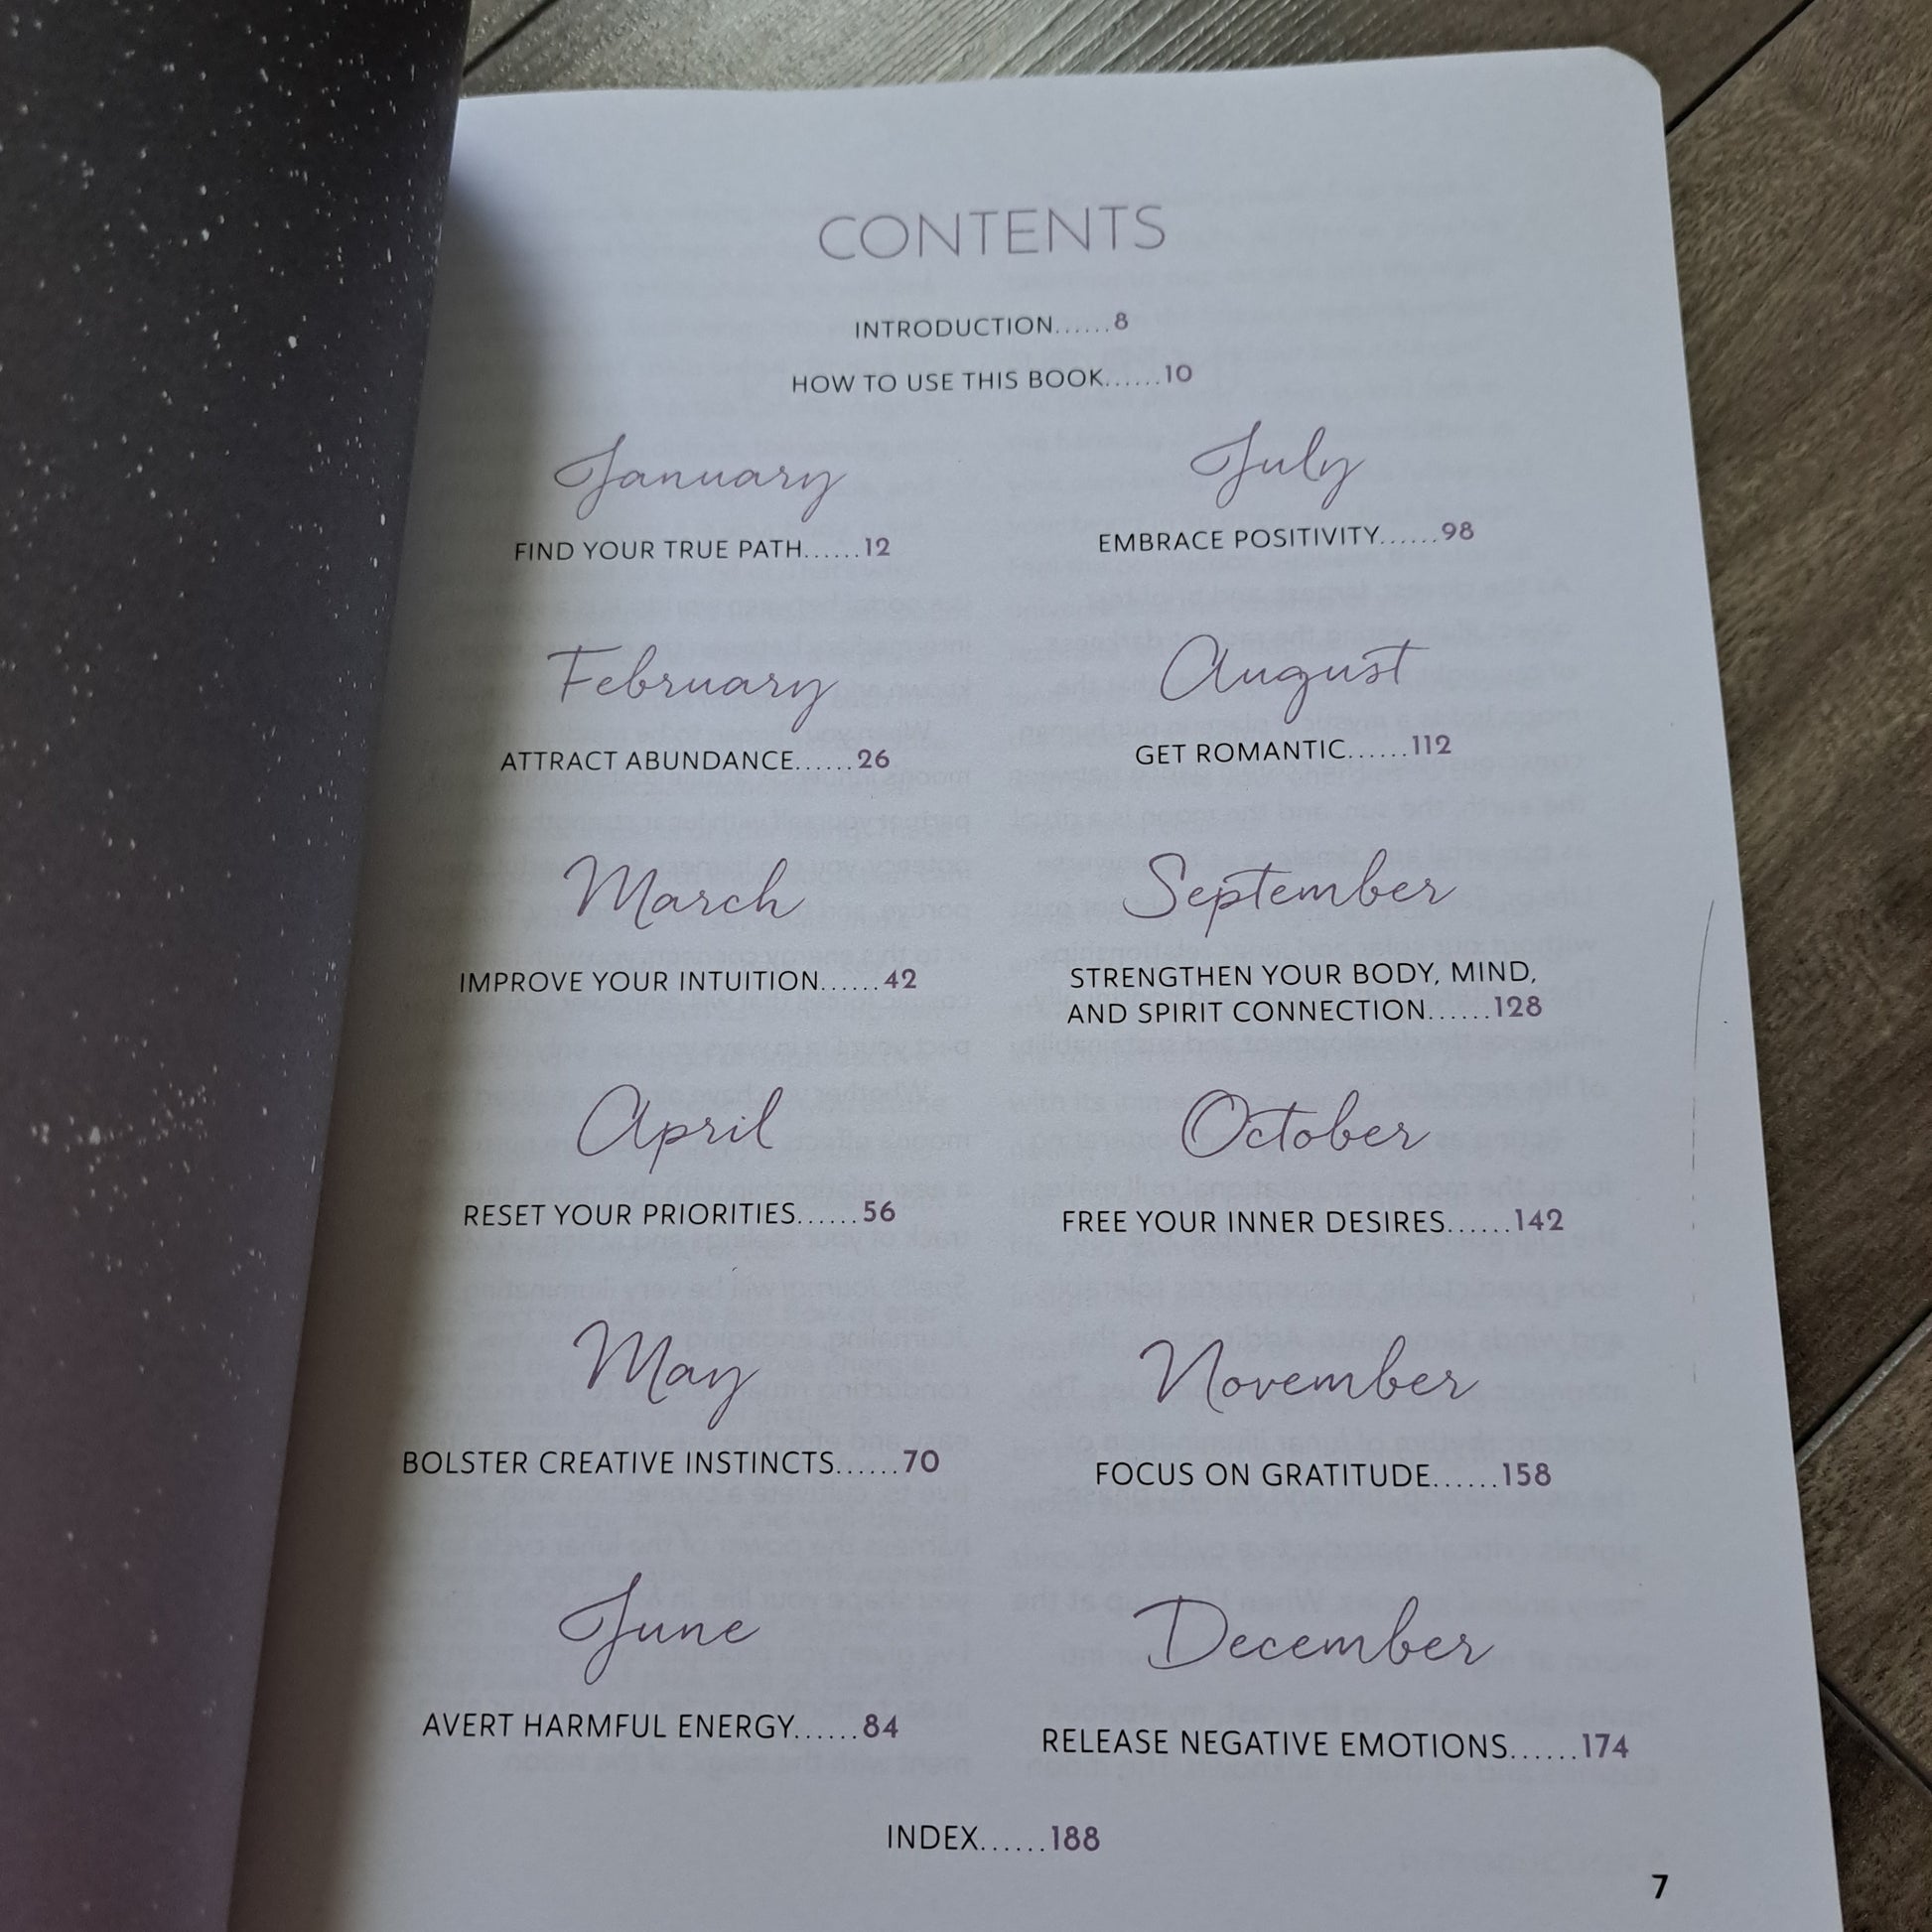 CONTENTS
INTRODUCTION......8
HOW TO USE THIS BOOK......10
January
FIND YOUR TRUE PATH......12
February
ATTRACT ABUNDANCE......26
March
IMPROVE YOUR INTUITION......42
April
RESET YOUR PRIORITIES......56
May
BOLSTER CREATIVE INSTINCTS......70
June
AVERT HARMFUL ENERGY......84
July
EMBRACE POSITIVITY......98
August
GET ROMANTIC......112
September
STRENGTHEN YOUR BODY, MIND,
AND SPIRIT CONNECTION......128
October
FREE YOUR INNER DESIRES......142
November
FOCUS ON GRATITUDE......158
December
RELEASE NEGATIVE EMOTIONS......174
INDEX......188
7